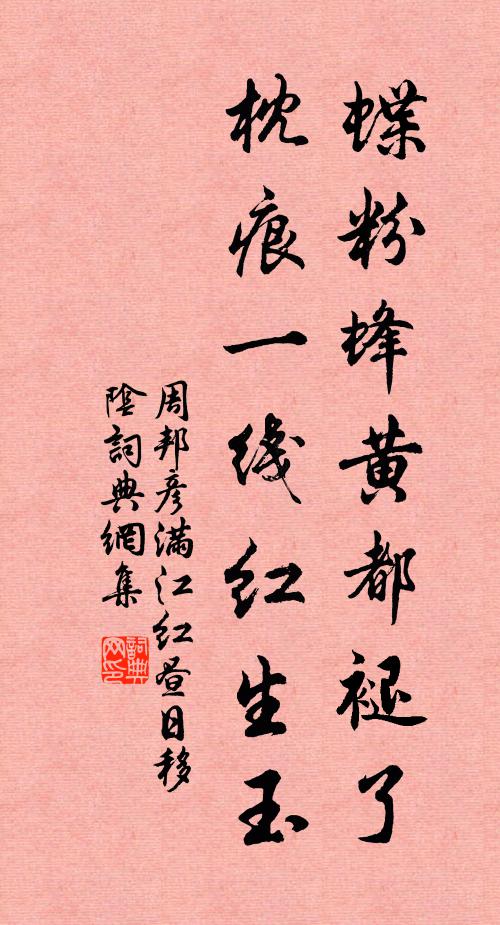 蝶粉蜂黄都褪了
枕痕一线红生玉
周邦彦满江红昼日移
陰詞典網集
詞典网印